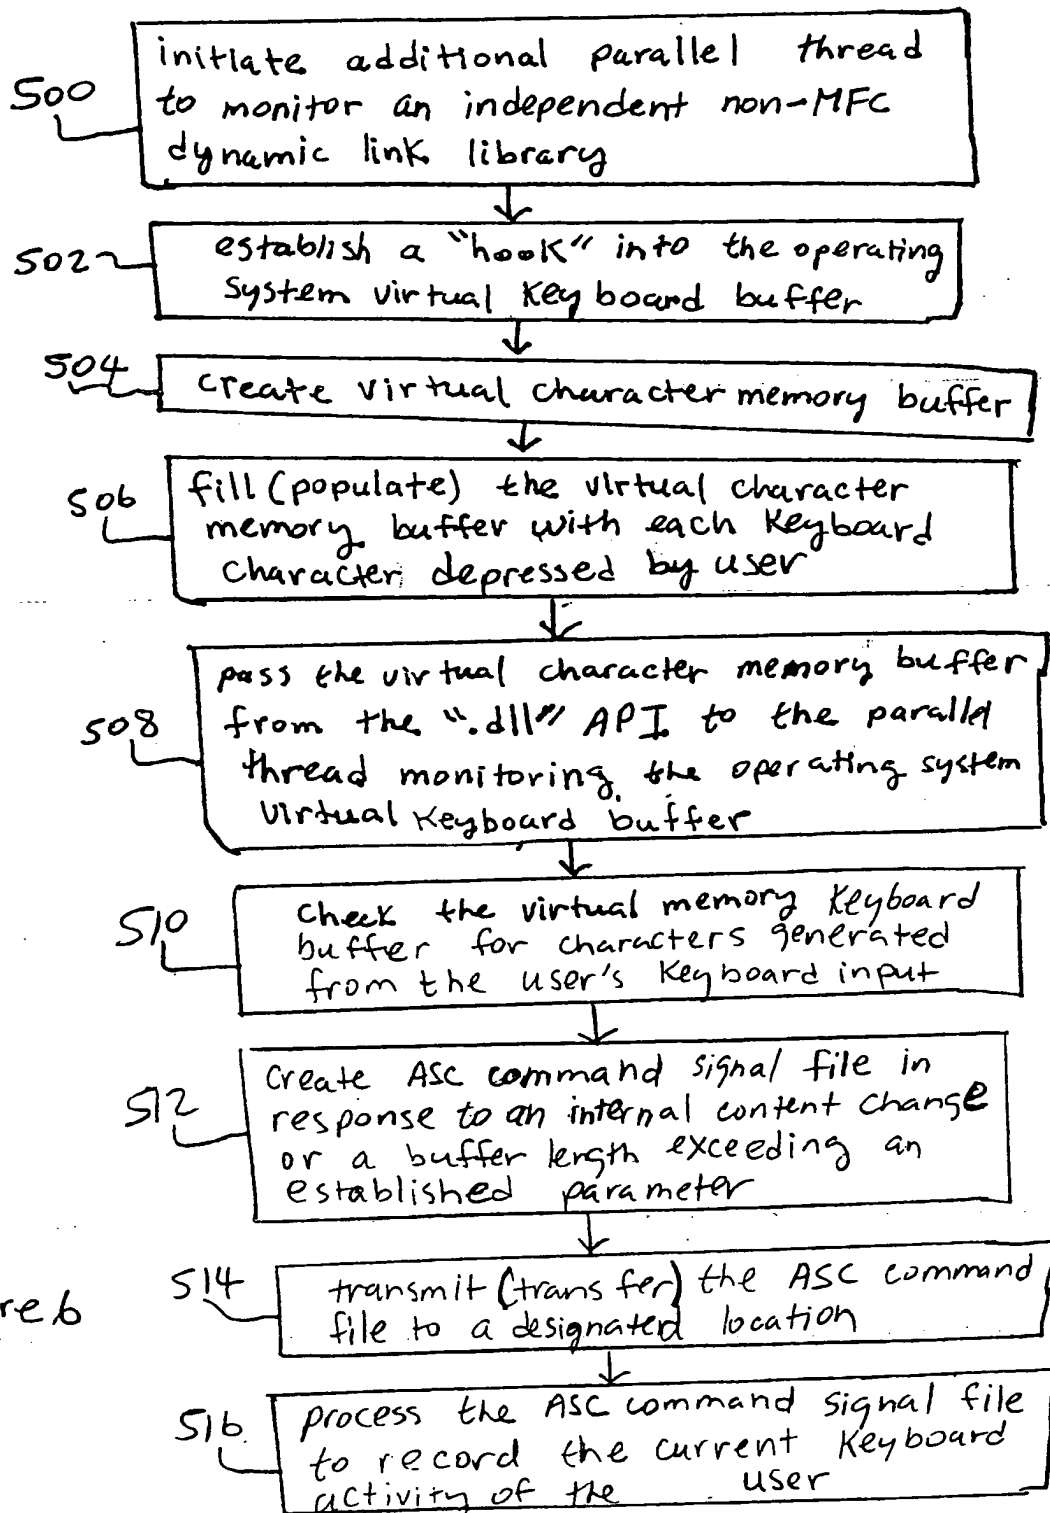 500
initiate additional parallel thread
to monitor an independent non-MFC
dynamic link library
502
establish a "hook" into the operating
system virtual keyboard buffer
504
create virtual character memory buffer
506
fill (populate) the virtual character
memory buffer with each keyboard
character depressed by user
508
pass the virtual character memory buffer
from the ".dll" API to the parallel
thread monitoring the operating system
virtual keyboard buffer
510
check the virtual memory keyboard
buffer for characters generated
from the user's keyboard input
512
create ASC command signal file in
response to an internal content change
or a buffer length exceeding an
established parameter
514
transmit (transfer) the ASC command
file to a designated location
re 6
516
process the ASC command signal file
to record the current keyboard
activity of the user